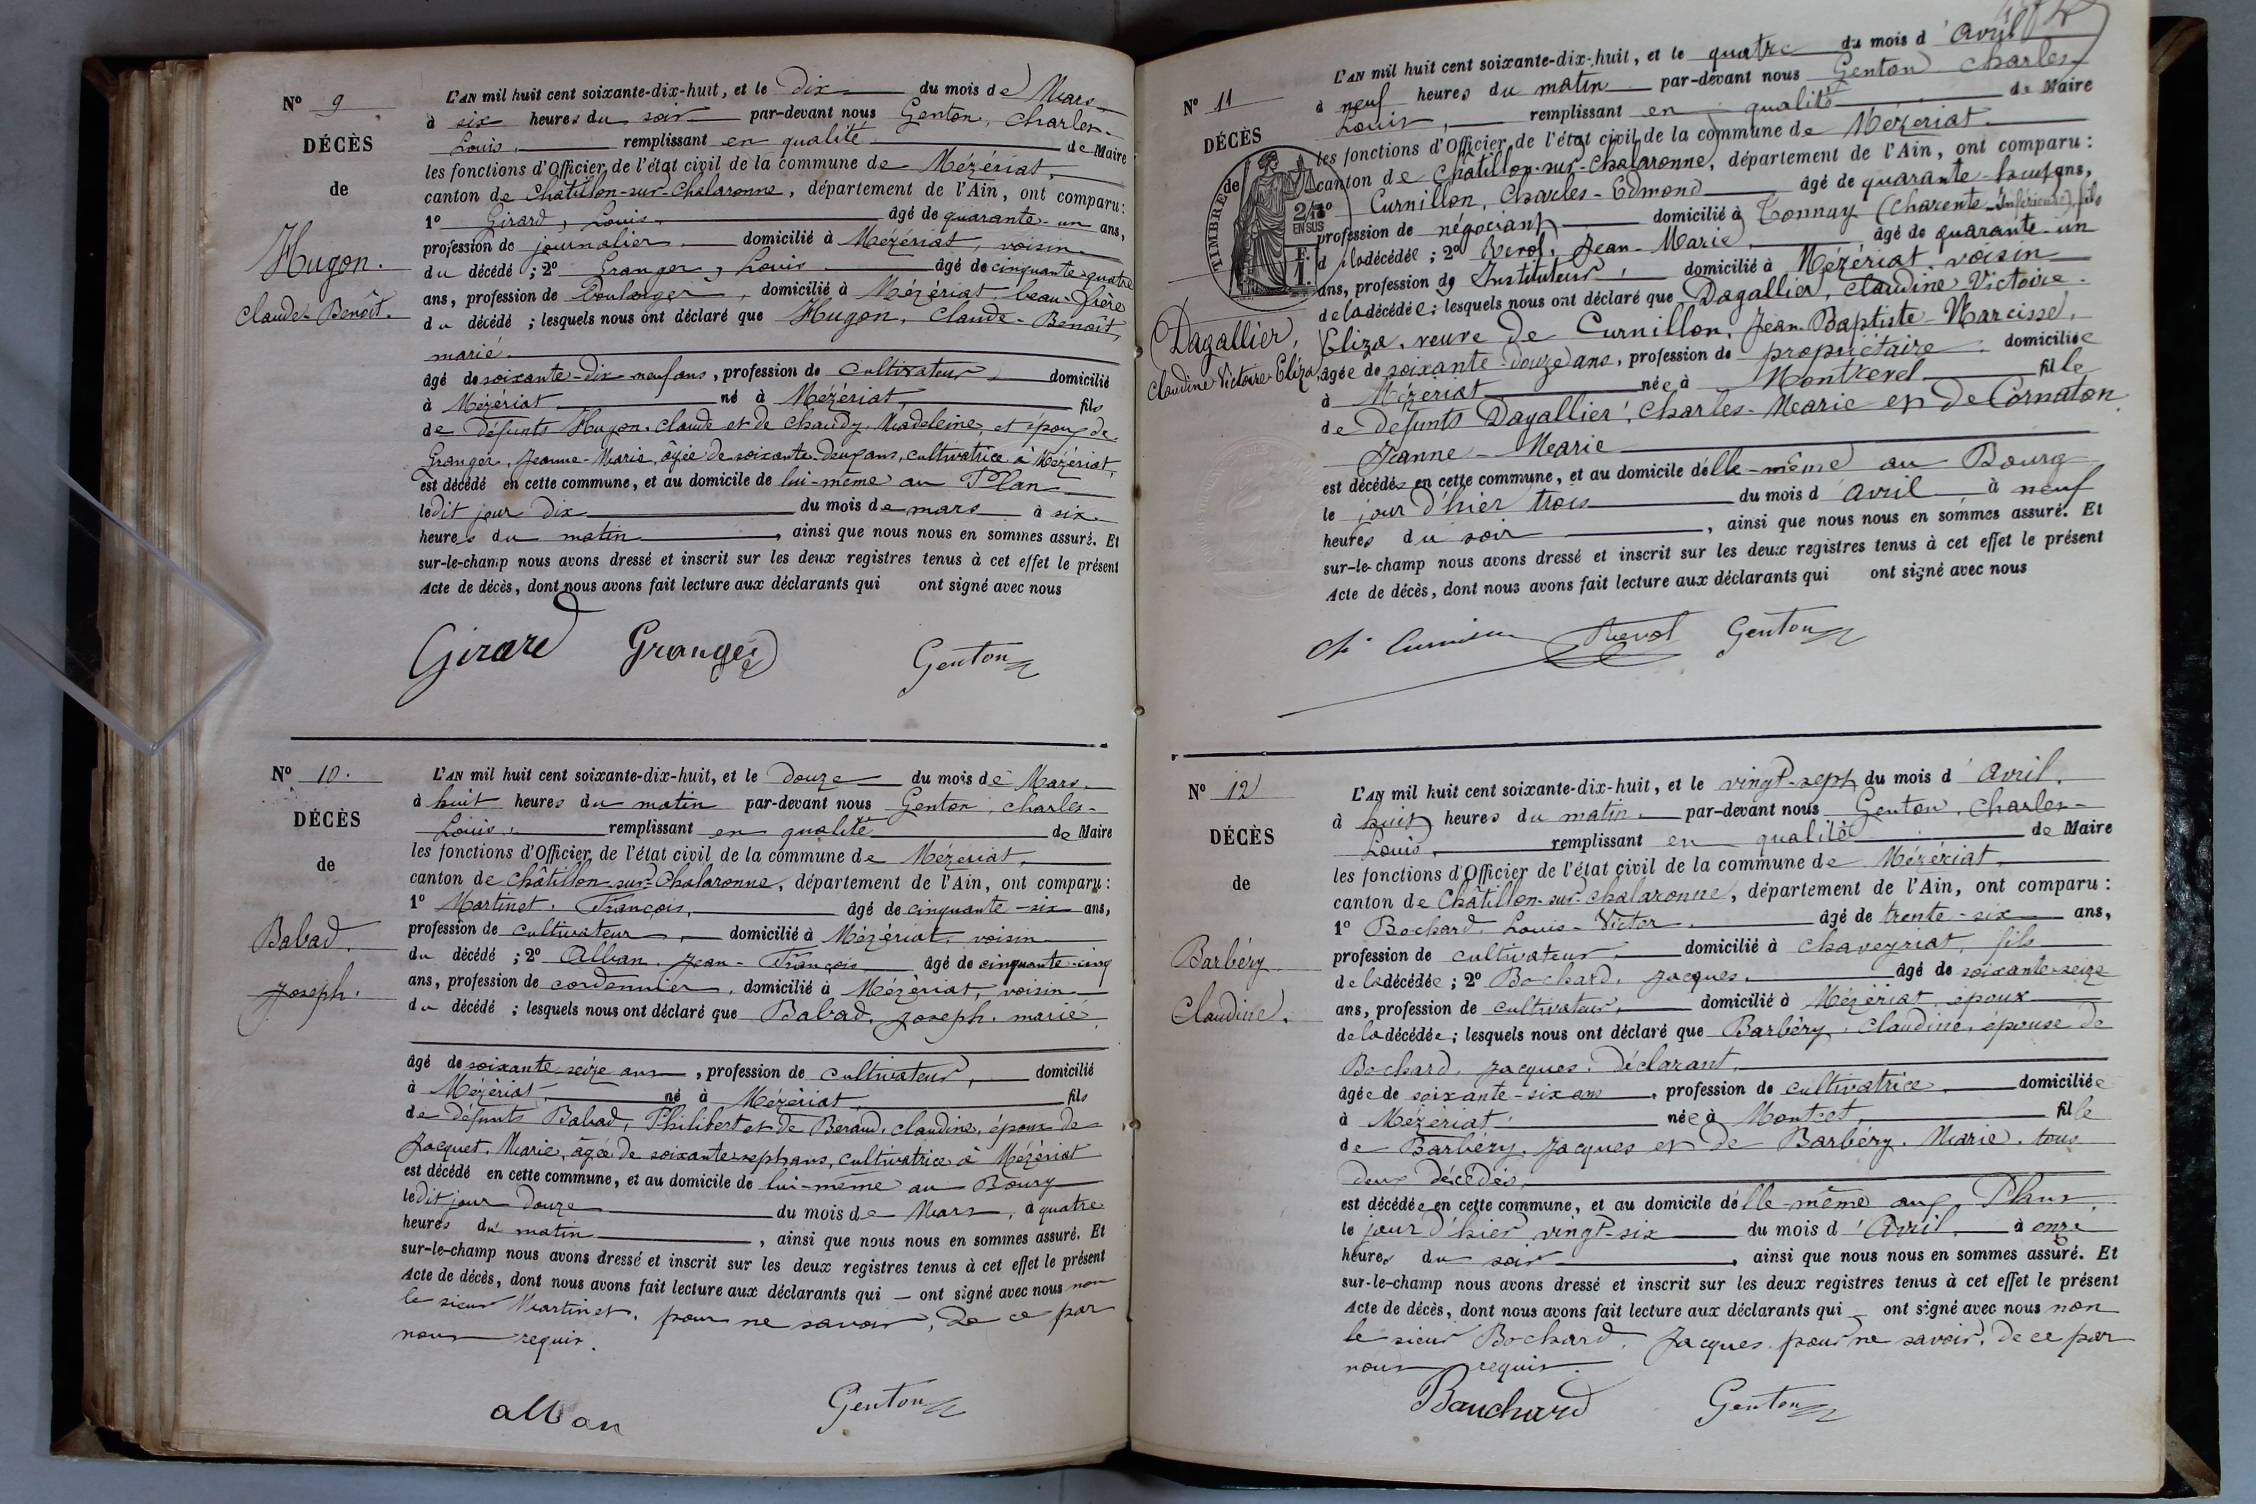 Nº 9
DÉCÈS
de
Hugon.
Claude-Benoît.
L'AN mil huit cent soixante-dix-huit, et le dix du mois de Mars
à six heures du soir par-devant nous Genton, Charles-
Louis. remplissant en qualité de Maire
les fonctions d'Officier de l'état civil de la commune de Mézériat,
canton de Châtillon-sur-Chalaronne, département de l'Ain, ont comparu:
1º Girard, Louis. âgé de quarante-un ans,
profession de journalier domicilié à Mézériat, voisin
du décédé ; 2º Granger, Louis âgé de cinquante-quatre
ans, profession de Boulanger, domicilié à Mézériat, beau-frère
du décédé ; lesquels nous ont déclaré que Hugon, Claude-Benoît,
marié.
âgé de soixante-dix-neuf ans, profession de cultivateur, domicilié
à Mézériat né à Mézériat, fils
de défunts Hugon, Claude et de Chaudy, Madeleine, et époux de
Granger, Jeanne-Marie, âgée de soixante-deux ans, cultivatrice à Mézériat,
est décédé en cette commune, et au domicile de lui-même au Plan
ledit jour dix du mois de mars à six
heures du matin, ainsi que nous nous en sommes assuré. Et
sur-le-champ nous avons dressé et inscrit sur les deux registres tenus à cet effet le présent
Acte de décès, dont nous avons fait lecture aux déclarants qui ont signé avec nous
Girard Granger Genton
Nº 10.
DÉCÈS
de
Babad.
Joseph.
L'AN mil huit cent soixante-dix-huit, et le douze du mois de Mars.
à huit heures du matin par-devant nous Genton, Charles-
Louis. remplissant en qualité de Maire
les fonctions d'Officier de l'état civil de la commune de Mézériat,
canton de Châtillon-sur-Chalaronne, département de l'Ain, ont comparu :
1º Martinet, François, âgé de cinquante-six ans,
profession de cultivateur, domicilié à Mézériat, voisin
du décédé ; 2º Alban, Jean-François âgé de cinquante-cinq
ans, profession de cordonnier, domicilié à Mézériat, voisin
du décédé ; lesquels nous ont déclaré que Babad, Joseph, marié
âgé de soixante-seize ans, profession de cultivateur, domicilié
à Mézériat né à Mézériat, fils
de défunts Babad, Philibert et de Beraud, Claudine, époux de
Jacquet, Marie, âgée de soixante-sept ans, cultivatrice à Mézériat
est décédé en cette commune, et au domicile de lui-même au Bourg
ledit jour douze du mois de Mars, à quatre
heures du matin, ainsi que nous nous en sommes assuré. Et
sur-le-champ nous avons dressé et inscrit sur les deux registres tenus à cet effet le présent
Acte de décès, dont nous avons fait lecture aux déclarants qui — ont signé avec nous non
le sieur Martinet, pour ne savoir, de ce par
nous requis.
alban Genton
Nº 11
DÉCÈS
de
TIMBRE
2/10
EN SUS
Dagallier,
Claudine Victoire Eliza,
L'AN mil huit cent soixante-dix-huit, et le quatre du mois d'Avril
à neuf heures du matin par-devant nous Genton Charles-
Louis, remplissant en qualité de Maire
les fonctions d'Officier de l'état civil de la commune de Mézériat.
canton de Châtillon-sur-Chalaronne, département de l'Ain, ont comparu :
1º Curnillon, Charles-Edmond âgé de quarante-huit ans,
profession de négociant domicilié à Tonnay (Charente-Inférieure), fils
de la décédée ; 2º Revol, Jean-Marie, âgé de quarante-un
ans, profession de Instituteur, domicilié à Mézériat, voisin
de la décédée ; lesquels nous ont déclaré que Dagallier, Claudine-Victoire-
Eliza, veuve de Curnillon, Jean-Baptiste-Narcisse,
âgée de soixante-douze ans, profession de propriétaire domiciliée
à Mézériat née à Montrevel fille
de défunts Dagallier, Charles-Marie et de Cornaton
Jeanne-Marie
est décédée en cette commune, et au domicile d'elle-même au Bourg
le jour d'hier trois du mois d'avril à neuf
heures du soir, ainsi que nous nous en sommes assuré. Et
sur-le-champ nous avons dressé et inscrit sur les deux registres tenus à cet effet le présent
Acte de décès, dont nous avons fait lecture aux déclarants qui ont signé avec nous
Revol Genton
Nº 12
DÉCÈS
de
Barbéry
Claudine.
L'AN mil huit cent soixante-dix-huit, et le vingt-sept du mois d'avril.
à huit heures du matin. par-devant nous Genton, Charles-
Louis, remplissant en qualité de Maire
les fonctions d'Officier de l'état civil de la commune de Mézériat,
canton de Châtillon-sur-Chalaronne, département de l'Ain, ont comparu :
1º Bochard, Louis-Victor, âgé de trente-six ans,
profession de cultivateur, domicilié à Chaveyriat, fils
de la décédée ; 2º Bochard, Jacques, âgé de soixante-seize
ans, profession de cultivateur, domicilié à Mézériat, époux
de la décédée ; lesquels nous ont déclaré que Barbéry, Claudine, épouse de
Bochard, Jacques, déclarant,
âgée de soixante-six ans, profession de cultivatrice, domiciliée
à Mézériat née à Montcet fille
de Barbéry, Jacques et de Barbéry, Marie, tous
deux décédés,
est décédée en cette commune, et au domicile d'elle-même aux Plans,
le jour d'hier vingt-six du mois d'avril à onze
heures du soir, ainsi que nous nous en sommes assuré. Et
sur-le-champ nous avons dressé et inscrit sur les deux registres tenus à cet effet le présent
Acte de décès, dont nous avons fait lecture aux déclarants qui — ont signé avec nous non
le sieur Bochard, Jacques pour ne savoir, de ce par
nous requis.
Bauchard Genton